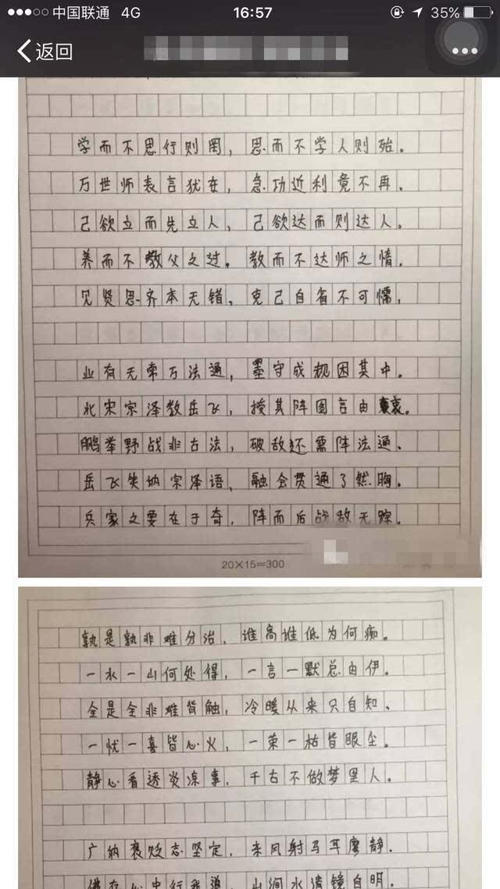 中国联通 4G 16:57 35%
返回
学而不思行则罔，思而不学人则殆。
万世师表言犹在，急功近利竟不再。
己欲立而先立人，己欲达而则达人。
养而不教父之过。教而不达师之情。
见贤思齐本无错，克己自省不可懦，
业有无常万法通，墨守成规困其中。
北宋宗泽教岳飞，授其阵图言由衷。
鹏举野战非古法，破敌还需阵法通、
岳飞失纳宗泽语，融会贯通了然胸。
兵家之要在于奇，阵而后战敌无踪。
20×15=300
孰是孰非难分治，谁高谁低为何痴。
一水一山何处得，一言一默总由伊。
全是全非难皆触，冷暖从来只自知、
一忧一喜皆心火，一荣一枯皆眼尘。
静心看透炎凉事，千古不做梦里人。
广纳褒贬志坚定，来风射马耳廖静.
山涧水清镜自明